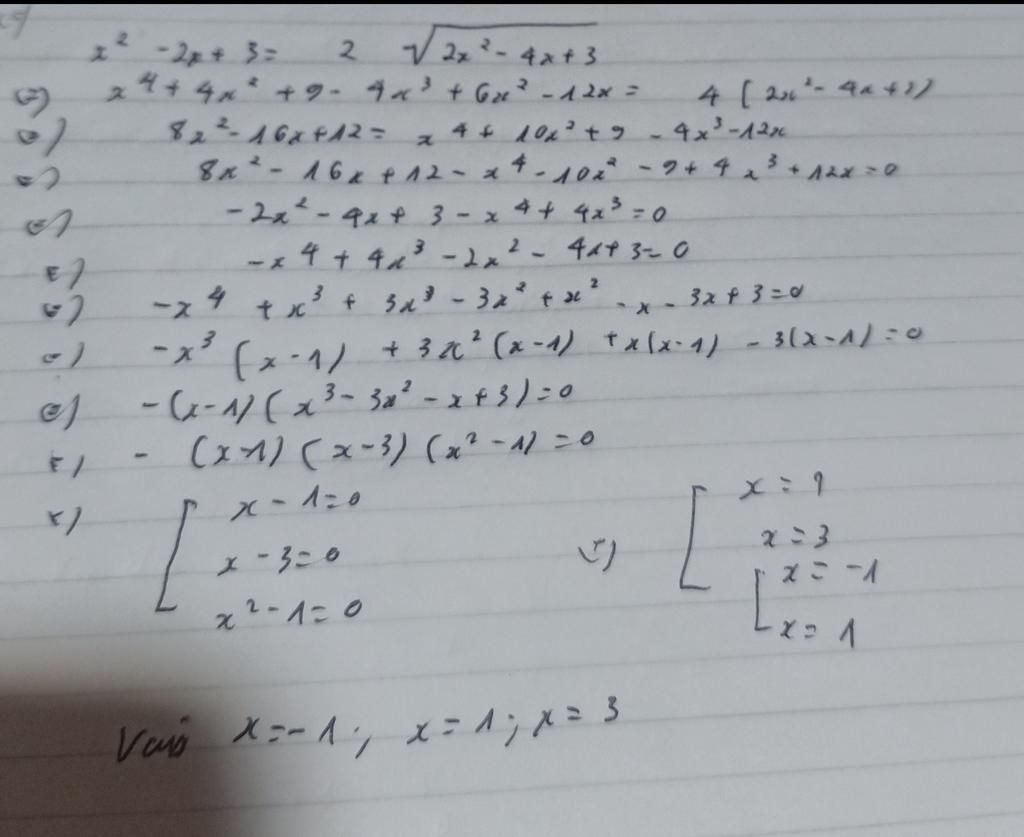 x² - 2x + 3 = 2 √(2x² - 4x + 3)
⇔) x⁴ + 4x² + 9 - 4x³ + 6x² - 12x = 4 (2x² - 4x + 3)
⇔) 8x² - 16x + 12 = x⁴ + 10x² + 9 - 4x³ - 12x
⇔) 8x² - 16x + 12 - x⁴ - 10x² - 9 + 4x³ + 12x = 0
⇔) -2x² - 4x + 3 - x⁴ + 4x³ = 0
⇔) -x⁴ + 4x³ - 2x² - 4x + 3 = 0
⇔) -x⁴ + x³ + 3x³ - 3x² + x² - x - 3x + 3 = 0
⇔) -x³ (x - 1) + 3x² (x - 1) + x(x - 1) - 3(x - 1) = 0
⇔) -(x - 1) (x³ - 3x² - x + 3) = 0
⇔) - (x - 1) (x - 3) (x² - 1) = 0
⇔) [ x - 1 = 0
x - 3 = 0
x² - 1 = 0
⇔) [ x = 1
x = 3
[ x = -1
x = 1
Vậy x = -1 ; x = 1 ; x = 3